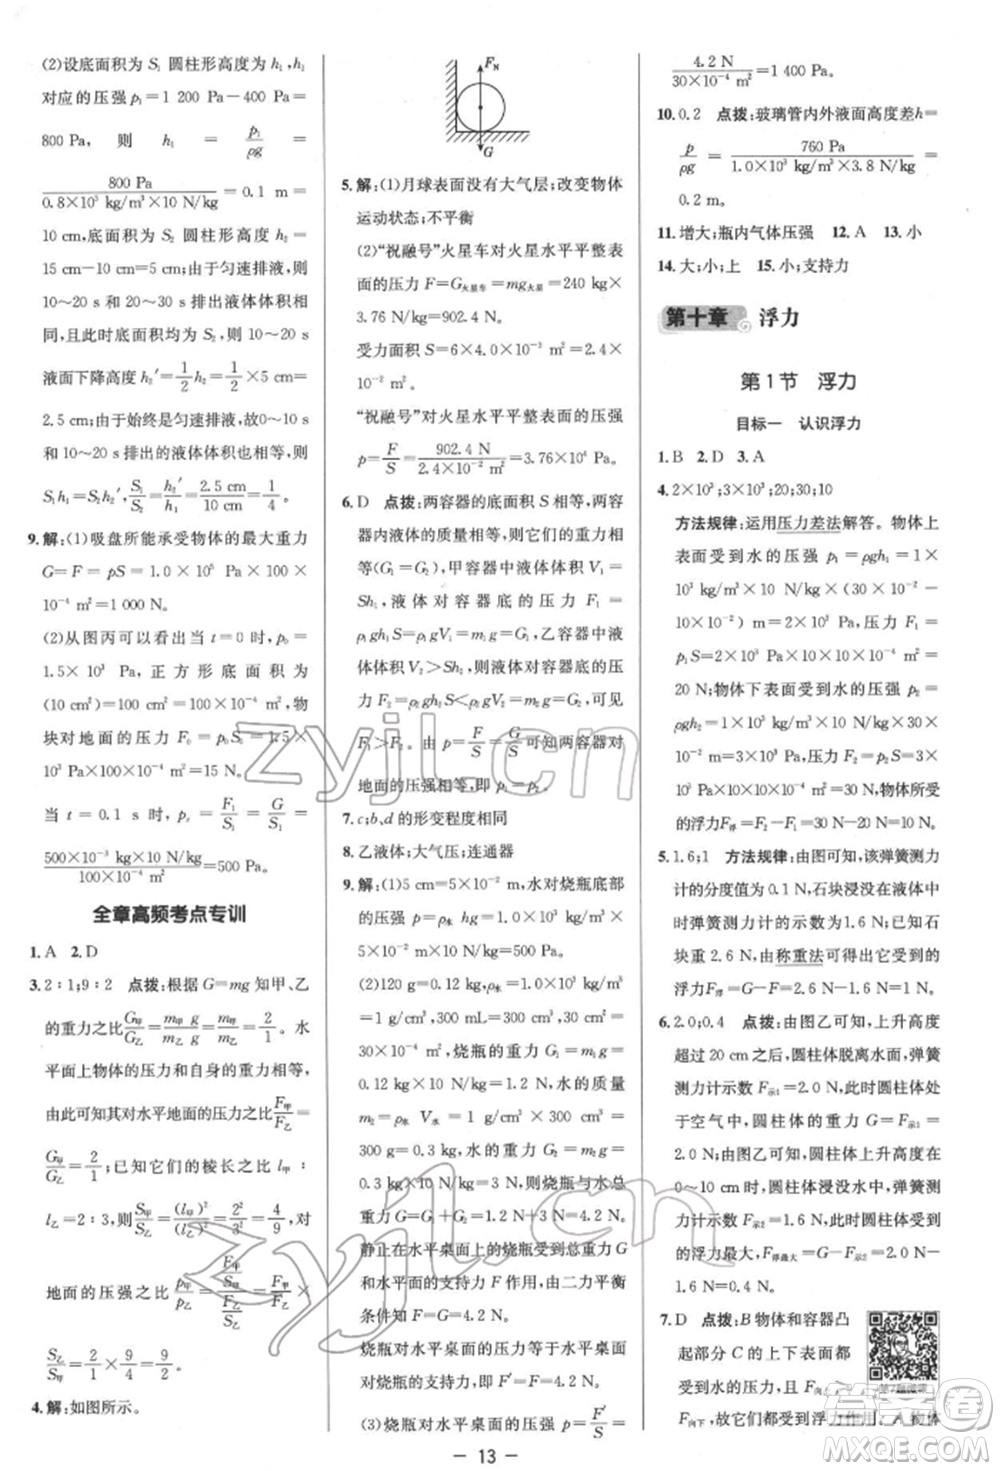 (2)设底面积为 S₁ 圆柱形高度为 h₁, h₁
对应的压强 p₁=1 200 Pa-400 Pa=
800 Pa, 则 h₁ = p₁/ρg =
800 Pa/(0.8×10³ kg/m³×10 N/kg) = 0.1 m =
10 cm,底面积为 S₂ 圆柱形高度为
15 cm-10 cm=5 cm;由于匀速排液,
10~20 s 与 0~10 s 排出液体体积相
同,且此时底面积均为 S₂,10~20 s
液面下降高度 h₂′= 1/2 h₂ = 1/2 ×5 cm=
2.5 cm;由于始终是匀速排液,故0~10 s
与10~20 s排出的液体体积相等,有
S₁h₁=S₂h₂′, S₁/S₂ = h₂′/h₁ = 2.5 cm/10 cm = 1/4 。
9.解:(1)吸盘所能承受物体的最大重力
G=F=pS=1.0×10⁵ Pa×100×
10⁻⁴ m²=1 000 N。
(2)从图丙可以看出当 t=0 时,p₀=
1.5×10³ Pa,正方形底面积为
(10 cm)²=100 cm²=100×10⁻⁴ m²,物
块对地面的压力 F₀=p₀S₀=1.5×
10³ Pa×100×10⁻⁴ m²=15 N。
当 t=0.1 s 时,pₓ= F₁/S₁ = G/S₁ =
500×10⁻³ kg×10 N/kg/(100×10⁻⁴ m²) =500 Pa。
全章高频考点专训
1.A 2.D
3.2∶1;9∶2 点拨:根据G=mg知甲、乙
的重力之比 G甲/G乙 = m甲 g/m乙 g = m甲/m乙 = 2/1 。水
平面上物体的压力和自身的重力相等,
由此可知其对水平地面的压力之比 F甲/F乙 =
G甲/G乙 = 2/1 。已知它们的棱长之比 l甲∶
l乙=2∶3,则 S甲/S乙 = (l甲)²/(l乙)² = 2²/3² = 4/9 ,对
地面的压强之比 p甲/p乙 = (F甲/S甲)/(F乙/S乙) = F甲/F乙 ×
S乙/S甲 = 2/1 × 9/4 = 9/2 。
4.解:如图所示。
F_N
G
5.解:(1)月球表面没有大气层;改变物体
运动状态;不平衡
(2)“祝融号”火星车对火星水平平整表
面的压力 F=G火星车=mg火星=240 kg×
3.76 N/kg=902.4 N。
受力面积 S=6×4.0×10⁻² m²=2.4×
10⁻² m²,
“祝融号”对火星水平平整表面的压强
p= F/S = 902.4 N/(2.4×10⁻² m²) =3.76×10⁴ Pa。
6.D 点拨:两容器的底面积 S 相等,两容
器内液体的质量相等,则它们的重力相
等(G₁=G₂),甲容器中液体体积 V₁=
Sh₁,液体对容器底的压力 F₁=
ρ₁gh₁S=ρ₁gV₁=m₁g=G₁,乙容器中液
体体积 V₂>Sh₂,则液体对容器底的压
力 F₂=ρ₂gh₂S<ρ₂gV₂=m₂g=G₂,可见
F₁>F₂。由 p= F/S = G/S 可知两容器对
地面的压强相等,即 p₁=p₂。
7.c;b、d 的形变程度相同
8.乙液体;大气压;连通器
9.解:(1)5 cm=5×10⁻² m,水对烧瓶底部
的压强 p=ρ水 hg=1.0×10³ kg/m³×
5×10⁻² m×10 N/kg=500 Pa。
(2)120 g=0.12 kg,1.0×10³ kg/m³
=1 g/cm³,300 mL=300 cm³,30 cm²=
30×10⁻⁴ m²,烧瓶的重力 G₁=m₁g=
0.12 kg×10 N/kg=1.2 N,水的质量
m₂=ρ水 V水=1 g/cm³×300 cm³=
300 g=0.3 kg,水的重力 G₂=m₂g=
0.3 kg×10 N/kg=3 N,则烧瓶与水的总
重力 G=G₁+G₂=1.2 N+3 N=4.2 N。
静止在水平桌面上的烧瓶受到总重力 G
和水平面的支持力 F 作用,由二力平衡
条件知 F=G=4.2 N。
烧瓶对水平桌面的压力等于水平桌面
对烧瓶的支持力,即 F′=F=4.2 N。
(3)烧瓶对水平桌面的压强 p= F′/S =
4.2 N/(30×10⁻⁴ m²) =1 400 Pa。
10.0.2 点拨:玻璃管内外液面高度差h=
p/ρg = 760 Pa/(1.0×10³ kg/m³×3.8 N/kg) =
0.2 m。
11.增大;瓶内气体压强 12.A 13.小
14.大;小;上 15.小;支持力
第十章 浮力
第1节 浮力
目标一 认识浮力
1.B 2.D 3.A
4.2×10³;3×10³;20;30;10
方法规律:运用压力差法解答。物体上
表面受到水的压强 p₁=ρgh₁=1×
10³ kg/m³×10 N/kg×(30×10⁻²-
10×10⁻²) m=2×10³ Pa;压力 F₁=
p₁S=2×10³ Pa×(10×10⁻²)² m²=
20 N;物体下表面受到水的压强 p₂=
ρgh₂=1×10³ kg/m³×10 N/kg×30×
10⁻² m=3×10³ Pa;压力 F₂=p₂S=3×
10³ Pa×(10×10⁻²)² m²=30 N;物体所受
的浮力F浮=F₂-F₁=30 N-20 N=10 N。
5.1.6;1 方法规律:由图可知,该弹簧测力
计的分度值为0.2 N;石块浸没在液体中
时弹簧测力计的示数为1.6 N;已知石
块重 2.6 N,由称重法可得石块受到的
浮力F浮=G-F=2.6 N-1.6 N=1 N。
6.2.0;0.4 点拨:由图乙可知,上升高度
超过 20 cm之后,圆柱体脱离水面,弹簧
测力计示数 F示1=2.0 N,此时圆柱体处
于空气中,圆柱体的重力 G=F示1=
2.0 N。由图乙可知,圆柱体上升高度在
0~10 cm时,圆柱体浸没水中,弹簧测
力计示数 F示2=1.6 N。圆柱体受到水
的浮力最大,F浮最大=G-F示2=2.0 N-
1.6 N=0.4 N。
7.D 点拨:B 物体和容器凸
起部分 C 的上下表面不能
同时受到水的压力,
故它们没有受到浮力作用,A 物体
— 13 —
zyjl.cn
zyjl.cn
答案卷
MXQE.COM